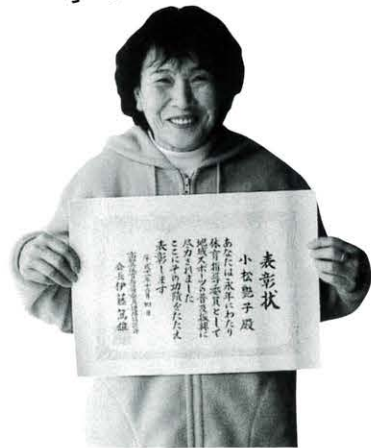 表彰状
小松艶子殿
あなたは永年にわたり
体育指導委員として
地域スポーツの普及振興に
尽力されました
ここにその功績をたたえ
表彰します
会長 伊藤篤雄